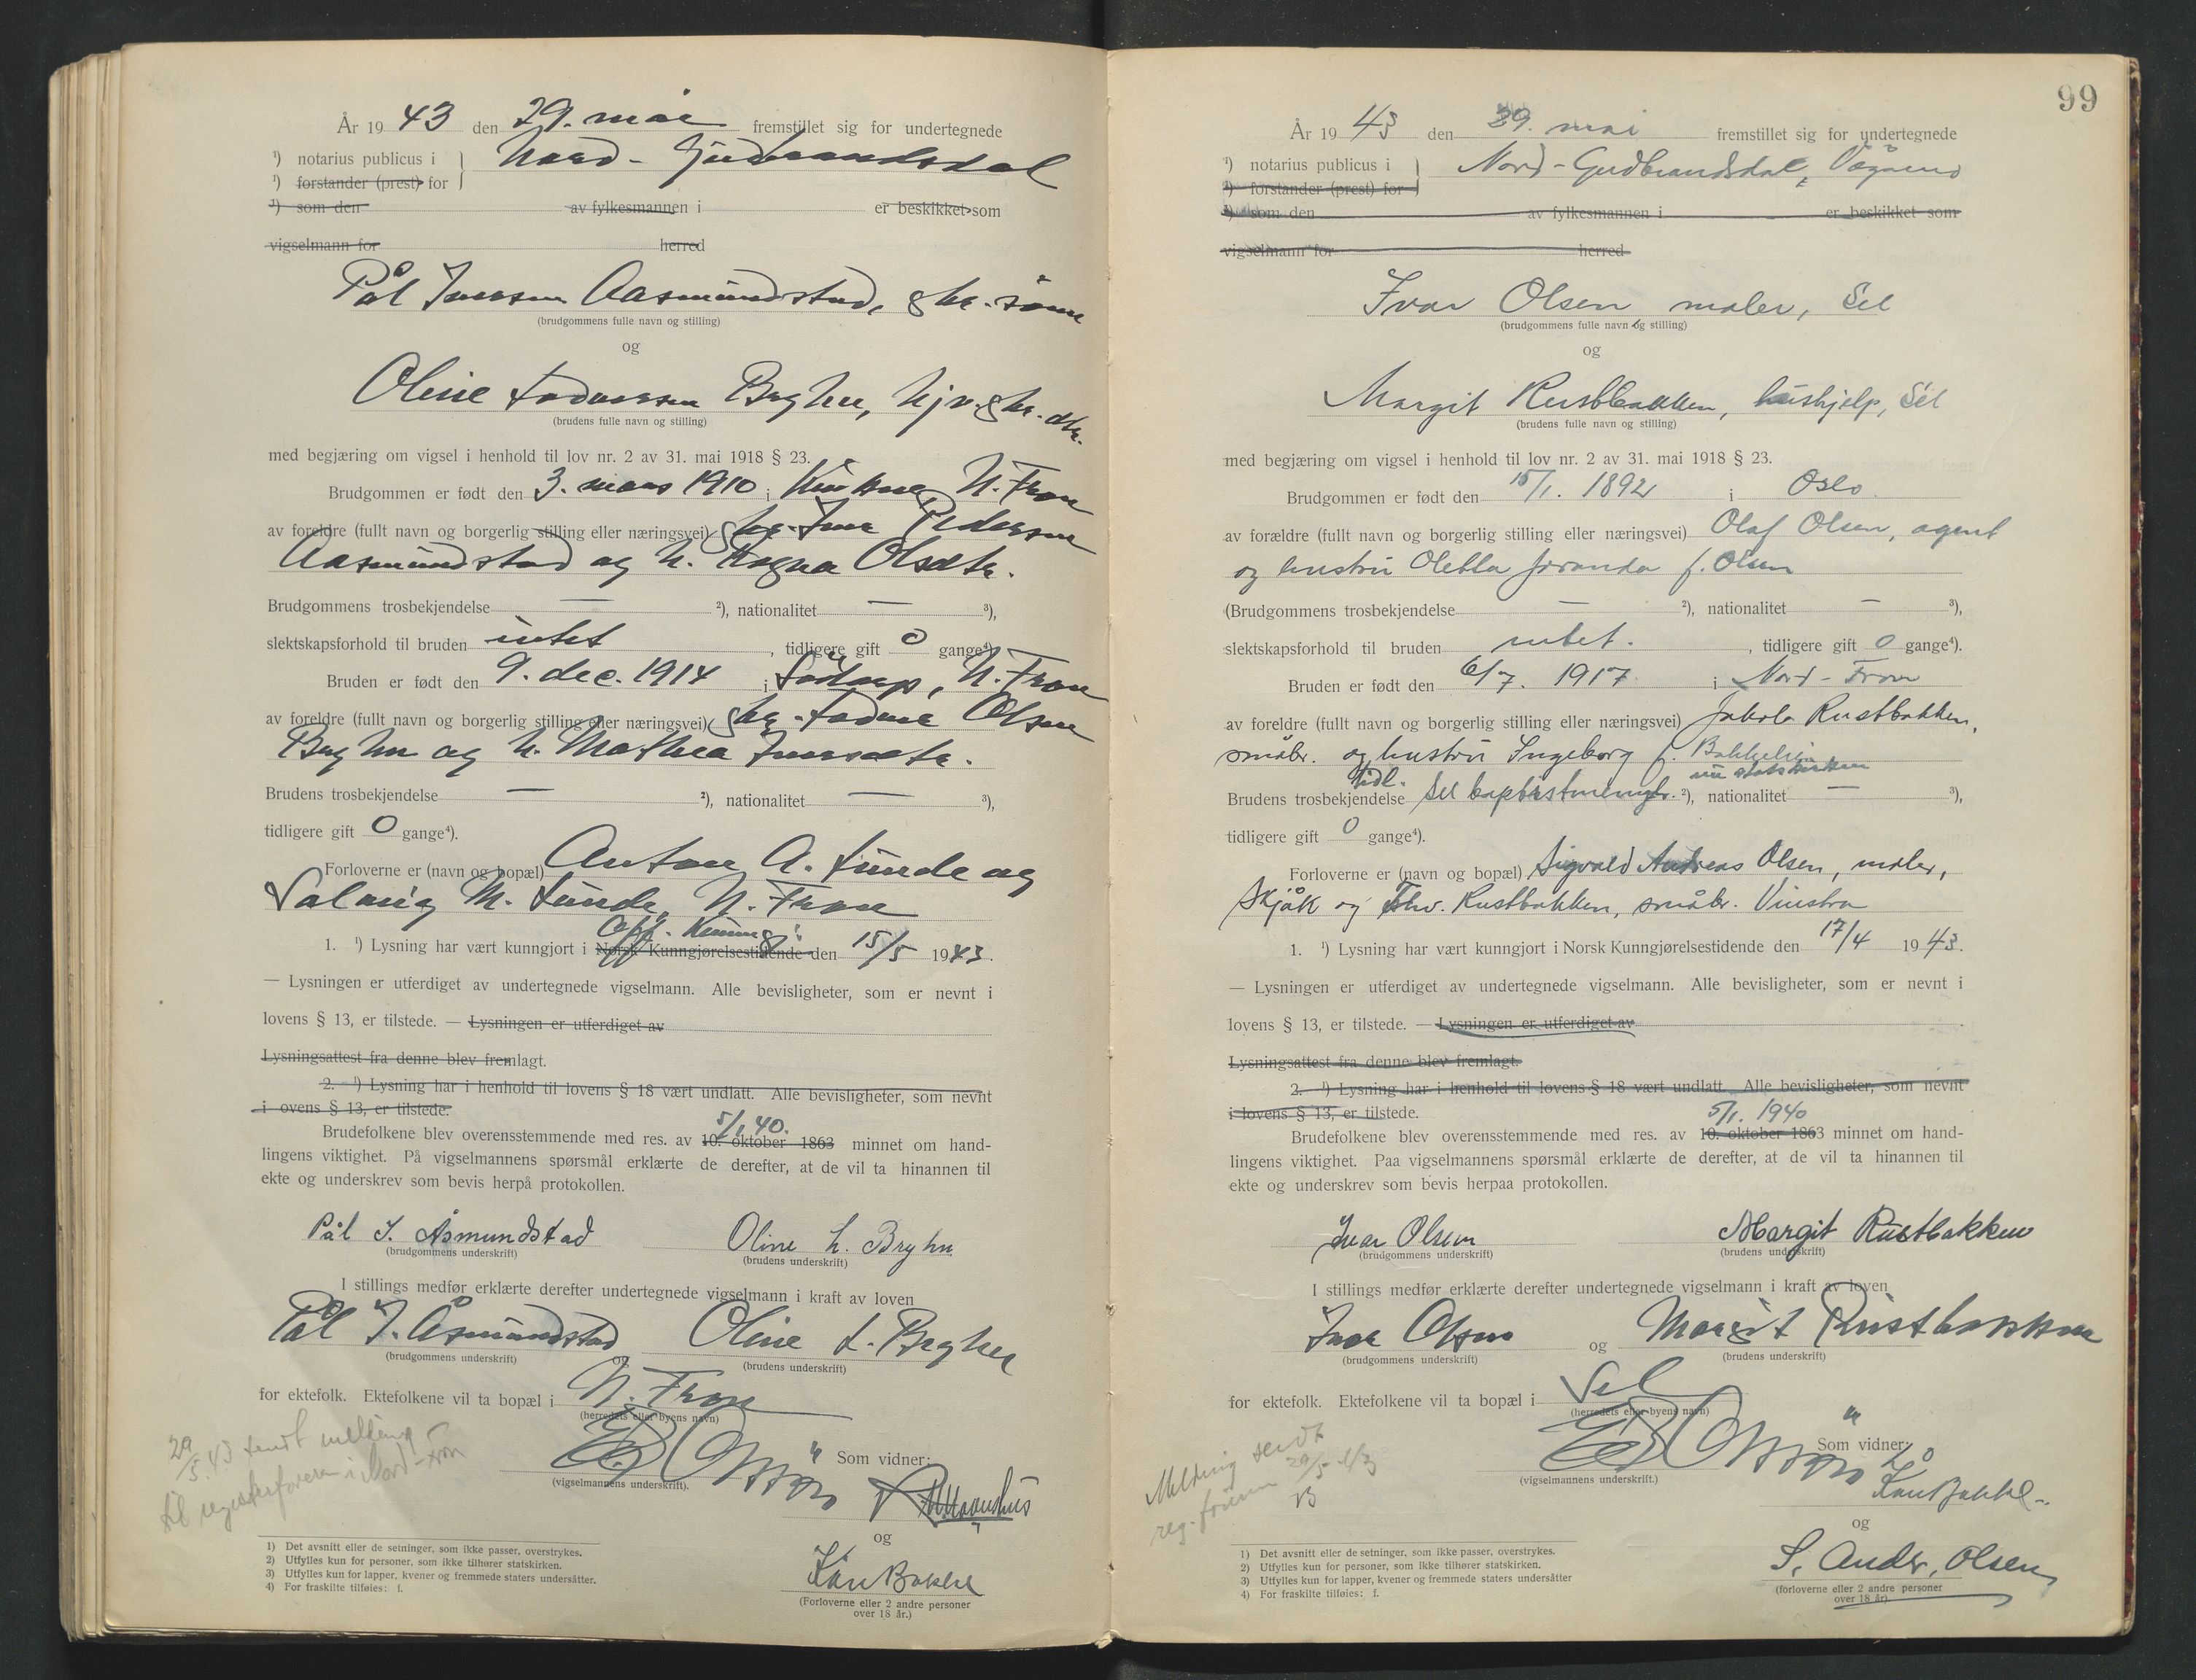 År 19 43 den 29. mai fremstillet sig for undertegnede
¹) notarius publicus i } Nord-Gudbrandsdal
¹) forstander (prest) for
¹) som den av fylkesmannen i er beskikket som
vigselmann for herred
Pål Iversen Aasmundstad, gbr. sønn
(brudgommens fulle navn og stilling)
og
Oline Bryhn, hjv. gbr. dtr.
(brudens fulle navn og stilling)
med begjæring om vigsel i henhold til lov nr. 2 av 31. mai 1918 § 23.
Brudgommen er født den 3. mars 1910 i N. Fron
av foreldre (fullt navn og borgerlig stilling eller næringsvei) gbr. Iver Pedersen
Aasmundstad og h. Ragna Olsdtr.
Brudgommens trosbekjendelse — ²), nationalitet — ³),
slektskapsforhold til bruden intet, tidligere gift 0 gange⁴).
Bruden er født den 9. dec. 1914 i Sødorp, N. Fron
av foreldre (fullt navn og borgerlig stilling eller næringsvei) gbr. Olsen
Bryhn og h. Mathea Iversdtr.
Brudens trosbekjendelse — ²), nationalitet — ³),
tidligere gift 0 gange⁴).
Forloverne er (navn og bopæl) Anton A. Lunde og
Solveig M. Lunde, N. Fron
Off. Kunng.
1. ¹) Lysning har vært kunngjort i Norsk Kunngjørelsestidende den 15/5 1943.
— Lysningen er utferdiget av undertegnede vigselmann. Alle bevisligheter, som er nevnt i
lovens § 13, er tilstede. — Lysningen er utferdiget av
Lysningsattest fra denne blev fremlagt.
2. ¹) Lysning har i henhold til lovens § 18 vært undlatt. Alle bevisligheter, som nevnt
i ovens § 13, er tilstede.
5/1. 40.
Brudefolkene blev overensstemmende med res. av 10. oktober 1863 minnet om hand-
lingens viktighet. På vigselmannens spørsmål erklærte de derefter, at de vil ta hinannen til
ekte og underskrev som bevis herpå protokollen.
Pål I. Åsmundstad Oline L. Bryhn
(brudgommens underskrift) (brudens underskrift)
I stillings medfør erklærte derefter undertegnede vigselmann i kraft av loven
Pål I. Åsmundstad og Oline L. Bryhn
(brudgommens underskrift) (brudens underskrift)
for ektefolk. Ektefolkene vil ta bopæl i N. Fron
(herredets eller byens navn)
29/5.43 sendt melding
til registerføreren i Nord-Fron
Som vidner:
(vigselmannens underskrift).
og
Kåre Bakke
(Forloverne eller 2 andre personer
over 18 år.)
1) Det avsnitt eller de setninger, som ikke passer, overstrykes.
2) Utfylles kun for personer, som ikke tilhører statskirken.
3) Utfylles kun for lapper, kvener og fremmede staters undersåtter.
4) For fraskilte tilføies: f.
99
År 19 43 den 29. mai fremstillet sig for undertegnede
¹) notarius publicus i } Nord-Gudbrandsdal, Vågåmo
¹) forstander (prest) for
¹) som den av fylkesmannen i er beskikket som
vigselmann for herred
Ivar Olsen maler, Sel
(brudgommens fulle navn og stilling)
og
Margit Rustbakken, hushjelp, Sel
(brudens fulle navn og stilling)
med begjæring om vigsel i henhold til lov nr. 2 av 31. mai 1918 § 23.
Brudgommen er født den 15/1. 1892 i Oslo
av forældre (fullt navn og borgerlig stilling eller næringsvei) Olaf Olsen, agent
og hustru f. Olsen
(Brudgommens trosbekjendelse — ²), nationalitet — ³),
slektskapsforhold til bruden intet. , tidligere gift 0 gange⁴).
Bruden er født den 6/7. 1917 i Nord-Fron
av foreldre (fullt navn og borgerlig stilling eller næringsvei) Jakob Rustbakken,
småbr. og hustru Ingeborg f. Bakkelien
tidl. nu statskirken
Brudens trosbekjendelse Sel baptistmenigh. ²), nationalitet — ³),
tidligere gift 0 gange⁴).
Forloverne er (navn og bopæl) Sigvald Andreas Olsen, maler,
Skjåk og Rustbakken, småbr. Vinstra
1. ¹) Lysning har vært kunngjort i Norsk Kunngjørelsestidende den 17/4 1943.
— Lysningen er utferdiget av undertegnede vigselmann. Alle bevisligheter, som er nevnt i
lovens § 13, er tilstede. — Lysningen er utferdiget av
Lysningsattest fra denne blev fremlagt.
2. ¹) Lysning har i henhold til lovens § 18 vært undlatt. Alle bevisligheter, som nevnt
i lovens § 13, er tilstede.
5/1. 1940
Brudefolkene blev overensstemmende med res. av 10. oktober 1863 minnet om hand-
lingens viktighet. Paa vigselmannens spørsmål erklærte de derefter, at de vil ta hinannen til
ekte og underskrev som bevis herpaa protokollen.
Ivar Olsen Margit Rustbakken
(brudgommens underskrift) (brudens underskrift)
I stillings medfør erklærte derefter undertegnede vigselmann i kraft av loven
Ivar Olsen og Margit Rustbakken
(brudgommens underskrift) (brudens underskrift)
for ektefolk. Ektefolkene vil ta bopæl i Sel
(herredets eller byens navn)
Melding sendt
reg. føreren 29/5-43
Som vidner:
(vigselmannens underskrift.)
Kåre Bakke
og
S. Andr. Olsen
(forloverne eller 2 andre personer
over 18 år).
1) Det avsnitt eller de setninger, som ikke passer, overstrykes.
2) Utfylles kun for personer, som ikke tilhører statskirken.
3) Utfylles kun for lapper, kvener og fremmede staters undersåtter
4) For fraskilte tilføies: f.